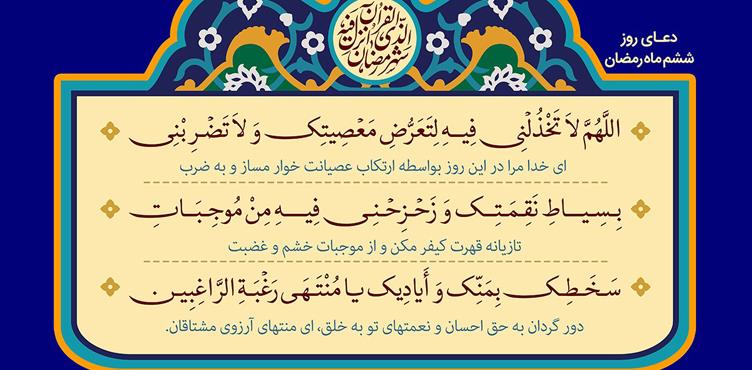 شهر رمضان الذی انزل فیه القرآن
دعـای روز
ششم ماه رمضان
اللَّهُمَّ لاَ تَخْذُلْنِی فِیـهِ لِتَعَرُّضِ مَعْصِیَتِکَ وَ لاَ تَضْرِبْنِی
ای خدا مرا در این روز بواسطه ارتکاب عصیانت خوار مساز و به ضرب
بِسِیَاطِ نَقِمَتِکَ وَ زَحْزِحْنِی فِیـهِ مِنْ مُوجِبَاتِ
تازیانه قهرت کیفر مکن و از موجبات خشم و غضبت
سَخَطِکَ بِمَنِّکَ وَ أَیَادِیکَ یَا مُنْتَهَی رَغْبَةِ الرَّاغِبِینَ
دور گردان به حق احسان و نعمتهای تو به خلق، ای منتهای آرزوی مشتاقان.